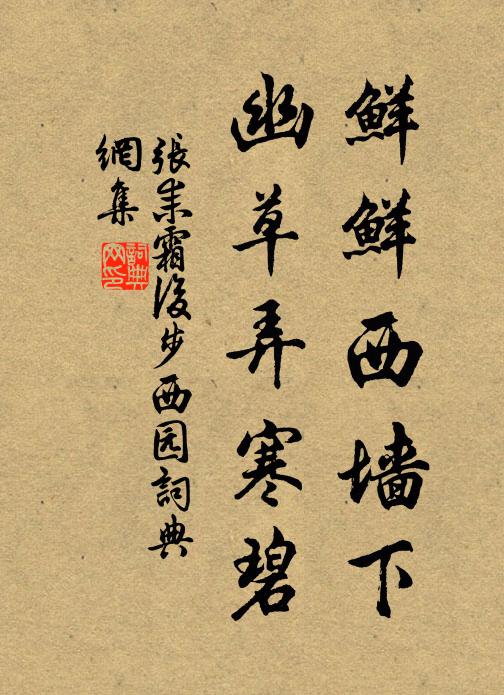 鮮鮮西墻下
幽草弄寒碧
張耒霜後步西园詞典
網集
詞典
网印